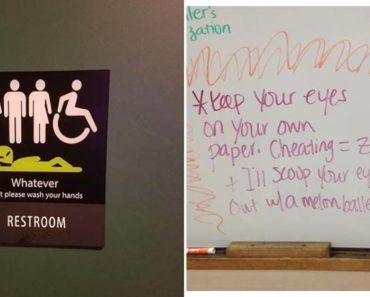 Whatever
please wash your hands
RESTROOM
*Keep your eyes
on your own
paper. Cheating =
+ I'll scoop your
out w/a melon